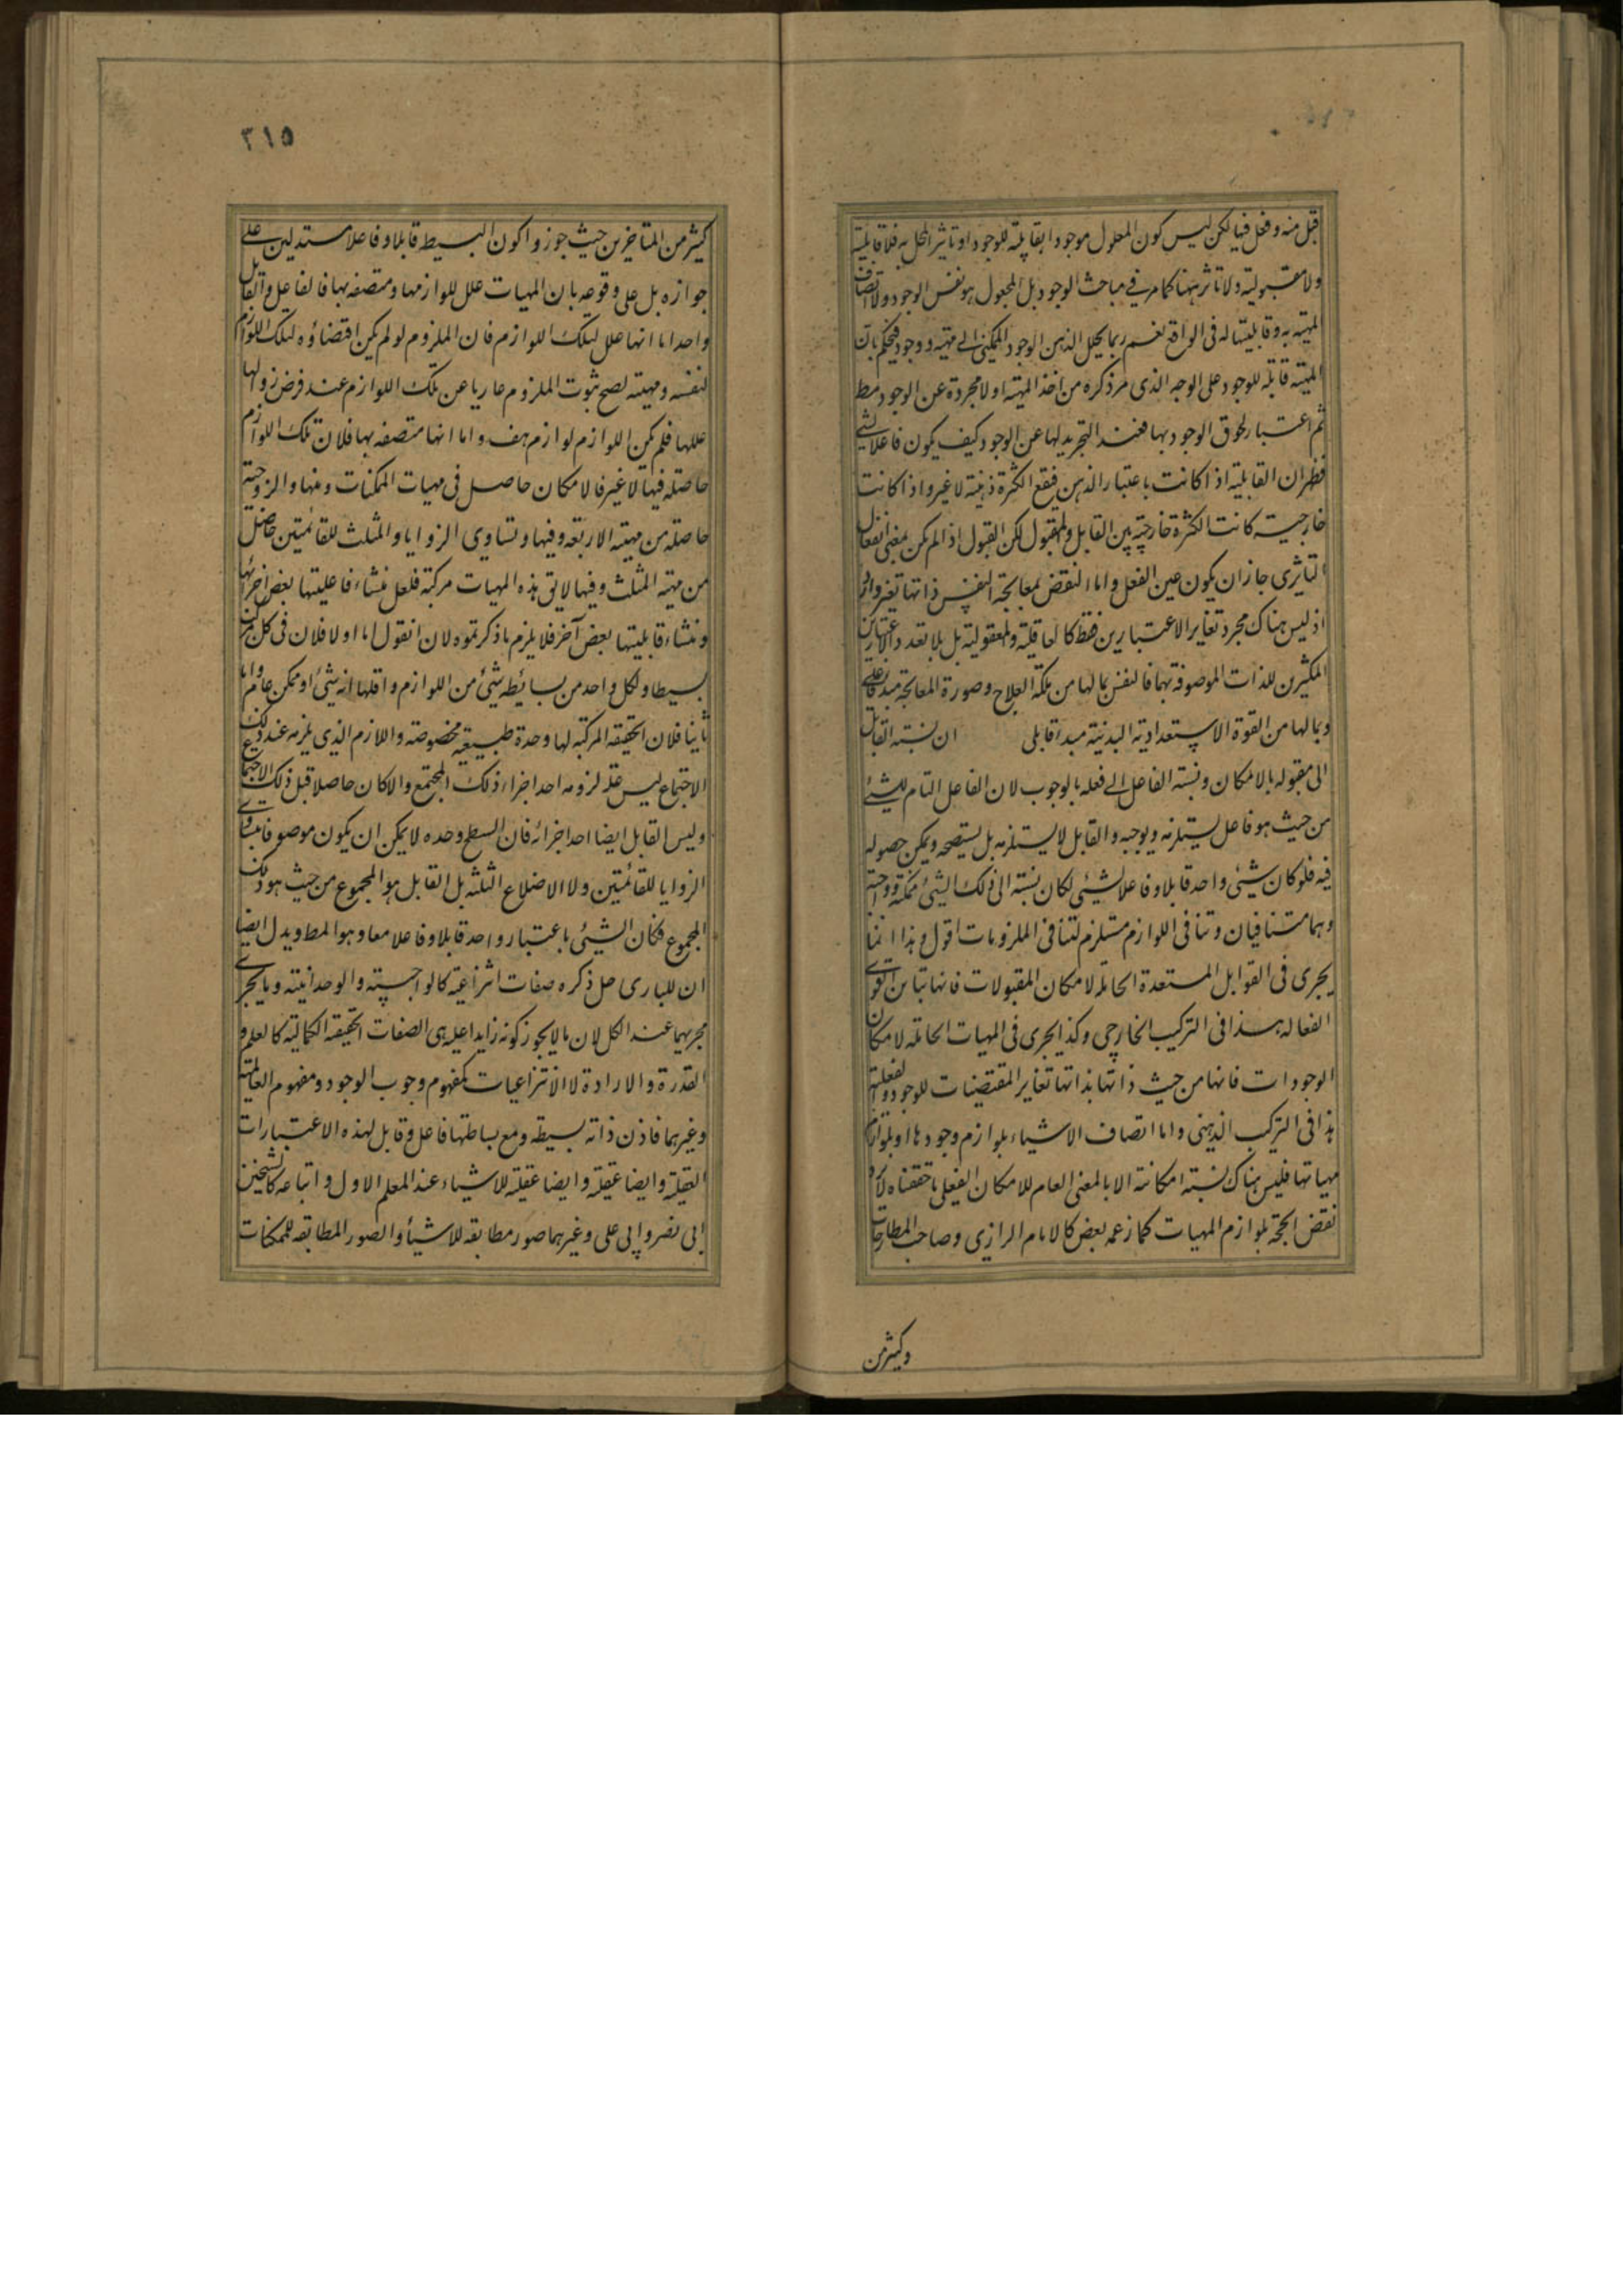 قبل منه وفعل فيها لكن ليس كون المعلول موجودا بقابلية للوجود او تاثير المحل به فلا قابلية
ولا مقبولية ولا تاثر ههنا كما مر في مباحث الوجود بل المجعول هو نفس الوجود ولا اتصاف
المهية به وقابليتها له في الواقع نعم ربما يحلل الذهن الوجود الممكني الى مهية ووجود فيحكم بان
المهية قابلة للوجود على الوجه الذى مر ذكره من اخذ المهية اولا مجردة عن الوجود مط
ثم اعتبار لحوق الوجود بها فعند التجريد لها عن الوجود كيف يكون فاعلا لشئ
فظهر ان القابلية اذا كانت باعتبار الذهن فتقع الكثرة ذهنية لا غير واذا كانت
خارجية كانت الكثرة خارجية بين القابل والمقبول لكن القبول اذا لم يكن بمعنى انفعال
التاثرى جاز ان يكون عين الفعل واما النقض بمعالجة النفس ذاتها فغير وارد
اذ ليس هناك مجرد تغاير الاعتبارين فقط كالعاقلية والمعقولية بل بلا تعدد الاعتبارين
المكثرين للذات الموصوفة بهما فالنفس بما لها من ملكة العلاج وصورة المعالجة مبدء فاعلى
وبما لها من القوة الاستعدادية البدنية مبدء قابلى ان نسبة القابل
الى مقبوله بالامكان ونسبة الفاعل الى فعله بالوجوب لان الفاعل التام للشئ
من حيث هو فاعل يستلزمه ويوجبه والقابل لا يستلزمه بل يستصحه ويمكن حصوله
فيه فلو كان شئ واحد قابلا وفاعلا لشئ لكان نسبته الى ذلك الشئ ممكنة وواجبة
وهما متنافيان وتنافى اللوازم مستلزم لتنافى الملزومات اقول وهذا انما
يجرى فى القوابل المستعدة الحاملة لامكان المقبولات فانها تباين القوى
الفعالة هذا فى التركيب الخارجى وكذا يجرى فى المهيات الحاملة لامكان
الوجودات فانها من حيث ذاتها بذاتها تغاير المقتضيات للوجود والفعلية
هذا فى التركيب الذهنى واما اتصاف الاشياء بلوازم وجودها او بلوازم
مهياتها فليس هناك نسبة امكانية الا بالمعنى العام للامكان الفعلى ما حققناه لا يرد
نقض الحجة بلوازم المهيات كما زعمه بعض كالامام الرازى وصاحب المطارحات
وكثير من
٣١٥
كثير من المتاخرين حيث جوزوا كون البسيط قابلا وفاعلا مستدلين على
جوازه بل على وقوعه بان المهيات علل للوازمها ومتصفه بها فالفاعل والقابل
واحد اما انها علل لتلك اللوازم فان الملزوم لو لم يكن اقتضاؤه لتلك اللوازم
لنفسه ومهيته لصح ثبوت الملزوم عاريا عن تلك اللوازم عند فرض زوالها
عللها فلم يكن اللوازم لوازم هف واما انها متصفه بها فلان تلك اللوازم
حاصلة فيها لا غير فالامكان حاصل فى مهيات الممكنات ومنها والزوجية
حاصلة من مهية الاربعة وفيها وتساوى الزوايا والمثلث للقائمتين حاصل
من مهية المثلث وفيها لا يق هذه المهيات مركبة فلعل منشاء فاعليتها بعض اجزائها
ومنشاء قابليتها بعض آخر فلا يلزم ما ذكرتموه لان انقول اما اولا فلان فى كل مركب
بسيطا ولكل واحد من بسائطه شئ من اللوازم واقلها انه شئ او ممكن عام واما
ثانيا فلان الحقيقة المركبة لها وحدة طبيعية مخصوصة واللازم الذى يلزمه عند ذلك
الاجتماع ليس علة لزومه احد اجزاء ذلك المجتمع والا كان حاصلا قبل ذلك الاجتماع
وليس القابل ايضا احد اجزائه فان السطح وحده لا يمكن ان يكون موصوفا بتساوى
الزوايا للقائمتين ولا الاضلاع الثلثه بل القابل هو المجموع من حيث هو ذلك
المجموع فكان الشئ باعتبار واحد قابلا وفاعلا معا وهو المط ويدل ايضا
ان للبارى جل ذكره صفات انتزاعية كالواجبية والوحدانية وما يجرى
مجريهما عند الكل لان ما لا يجوز كونه زايدا عليه هى الصفات الحقيقة الكمالية كالعلم و
القدرة والارادة لا الانتزاعيات كمفهوم وجوب الوجود ومفهوم العالمية
وغيرهما فاذن ذاته بسيطه ومع بساطتها فاعل وقابل لهذه الاعتبارات
العقلية وايضا عقلية وايضا عقليه للاشياء عند المعلم الاول واتباعه كالشيخين
ابى نصر وابى على وغيرهما صور مطابقه للاشياء والصور المطابقه للممكنات